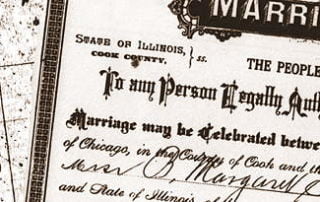 MARRI
STATE OF ILLINOIS,
COOK COUNTY, } ss.
THE PEOPLE
To any Person Legally Auth
Marriage may be Celebrated betwee
of Chicago, in the County of Cook and th
Margaret
and State of Illinois, of